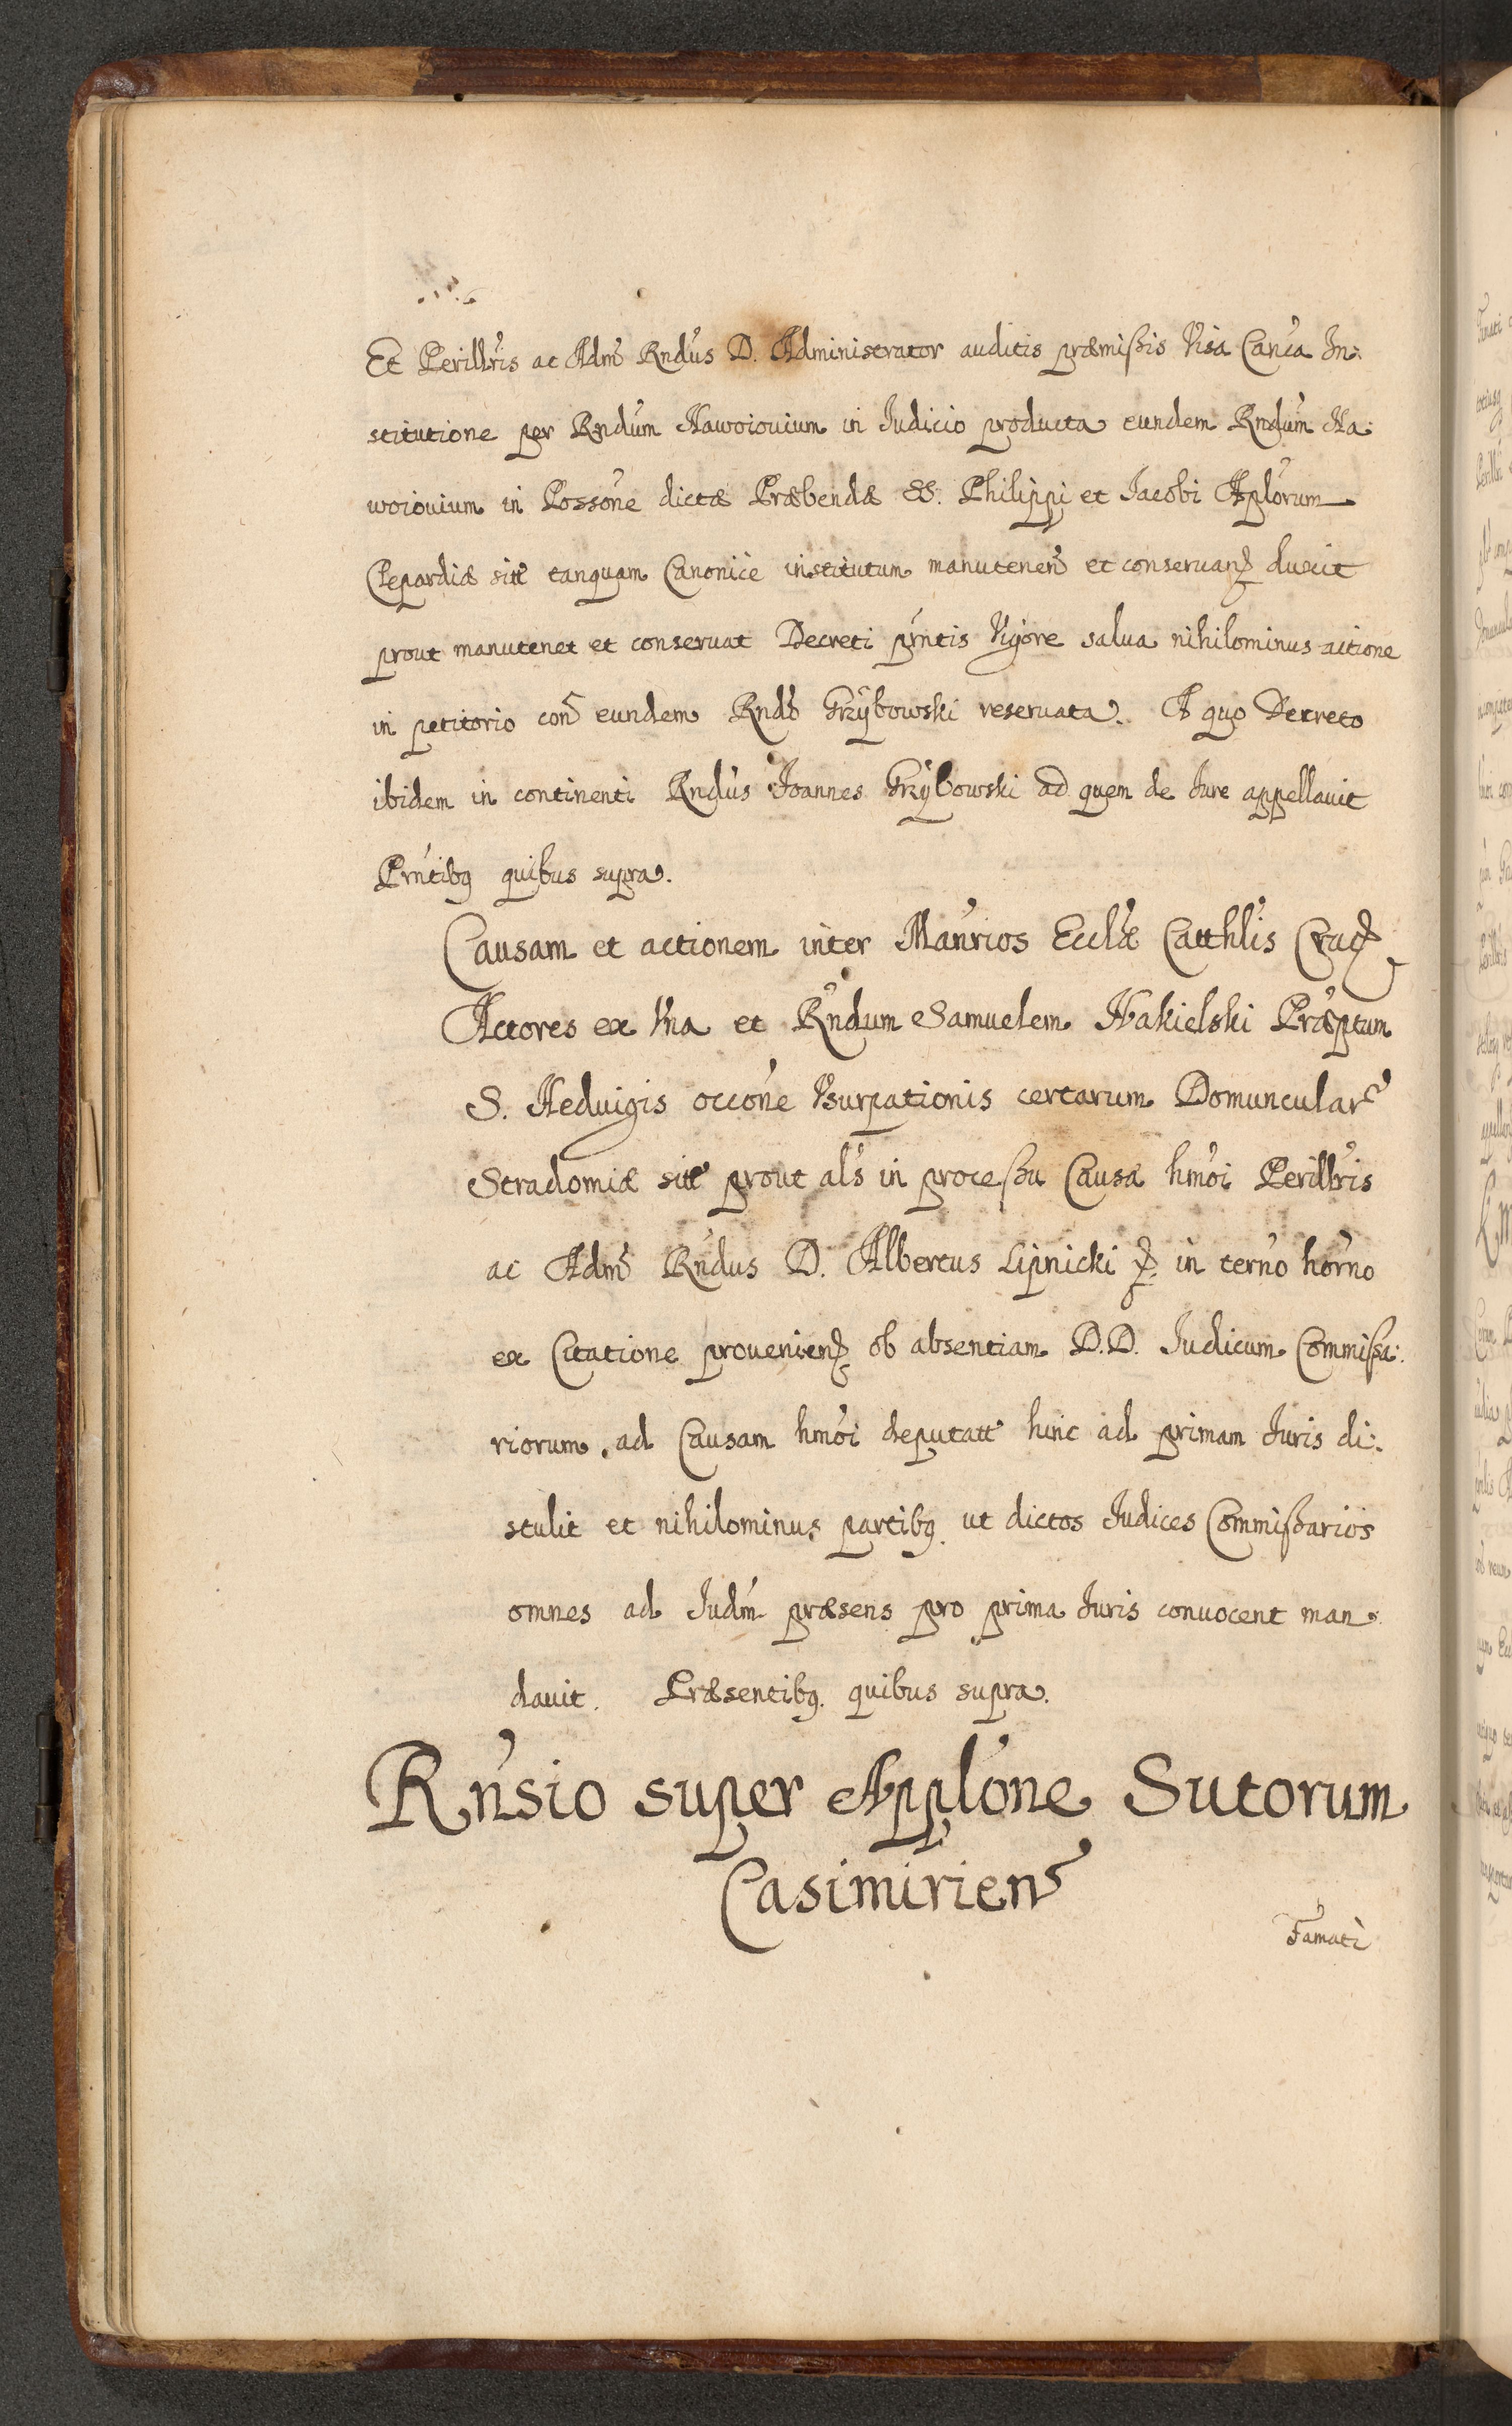 Et Perill̃ris ac Adm̃ Rñdus D. Administrator auditis præmißis Visa Canc̃a In:
stitutione per Rñdum Nawoiovium in Iudicio producta eundem Rñdum Na:
woiouium in Possoñe dictæ Præbendæ SS. Philippi et Iacobi Apl̃orum
Clepardiæ sitt̃ tanquam Canonicè institutum manutenen̄ et conseruand̃ duxit
prout manutenet et conseruat Decreti pr̃ntis Vigore salua nihilominus actione
in petitorio con̄ eundem Rndũ Grzÿbowski reseruata. A quo Decreto
ibidem in continenti Rñdus Ioannes Grzÿbowski ad quem de Iure appellauit
Pr̃ntibꝫ quibus supra.
Causam et actionem inter Mañrios Eccl̃æ Catthl̃is Crac̃
Actores ex Vna et Rñdum Samuelem Nakielski Præp̃tum
S. Heduigis occoñe Vsurpationis certarum Domuncular̃
Stradomiæ sitt̃ prout al̃s in proceßu Causæ hm̃oi Perill̃ris
ac Adm̃ Rñdus D. Albertus Lipnicki ꝛ̃ in terño horño
ex Citatione prouenien̄ ob absentiam D.D. Iudicum Commißa:
riorum ad Causam hm̃oi deputatt̃ hinc ad primam Iuris di:
stulit et nihilominus partibꝫ ut dictos Iudices Commißarios
omnes ad Iud̃m præsens pro prima Iuris conuocent man:
dauit. Præsentibꝫ quibus supra.
Rñsio super Appl̃one Sutorum
Casimirien̄
Famati